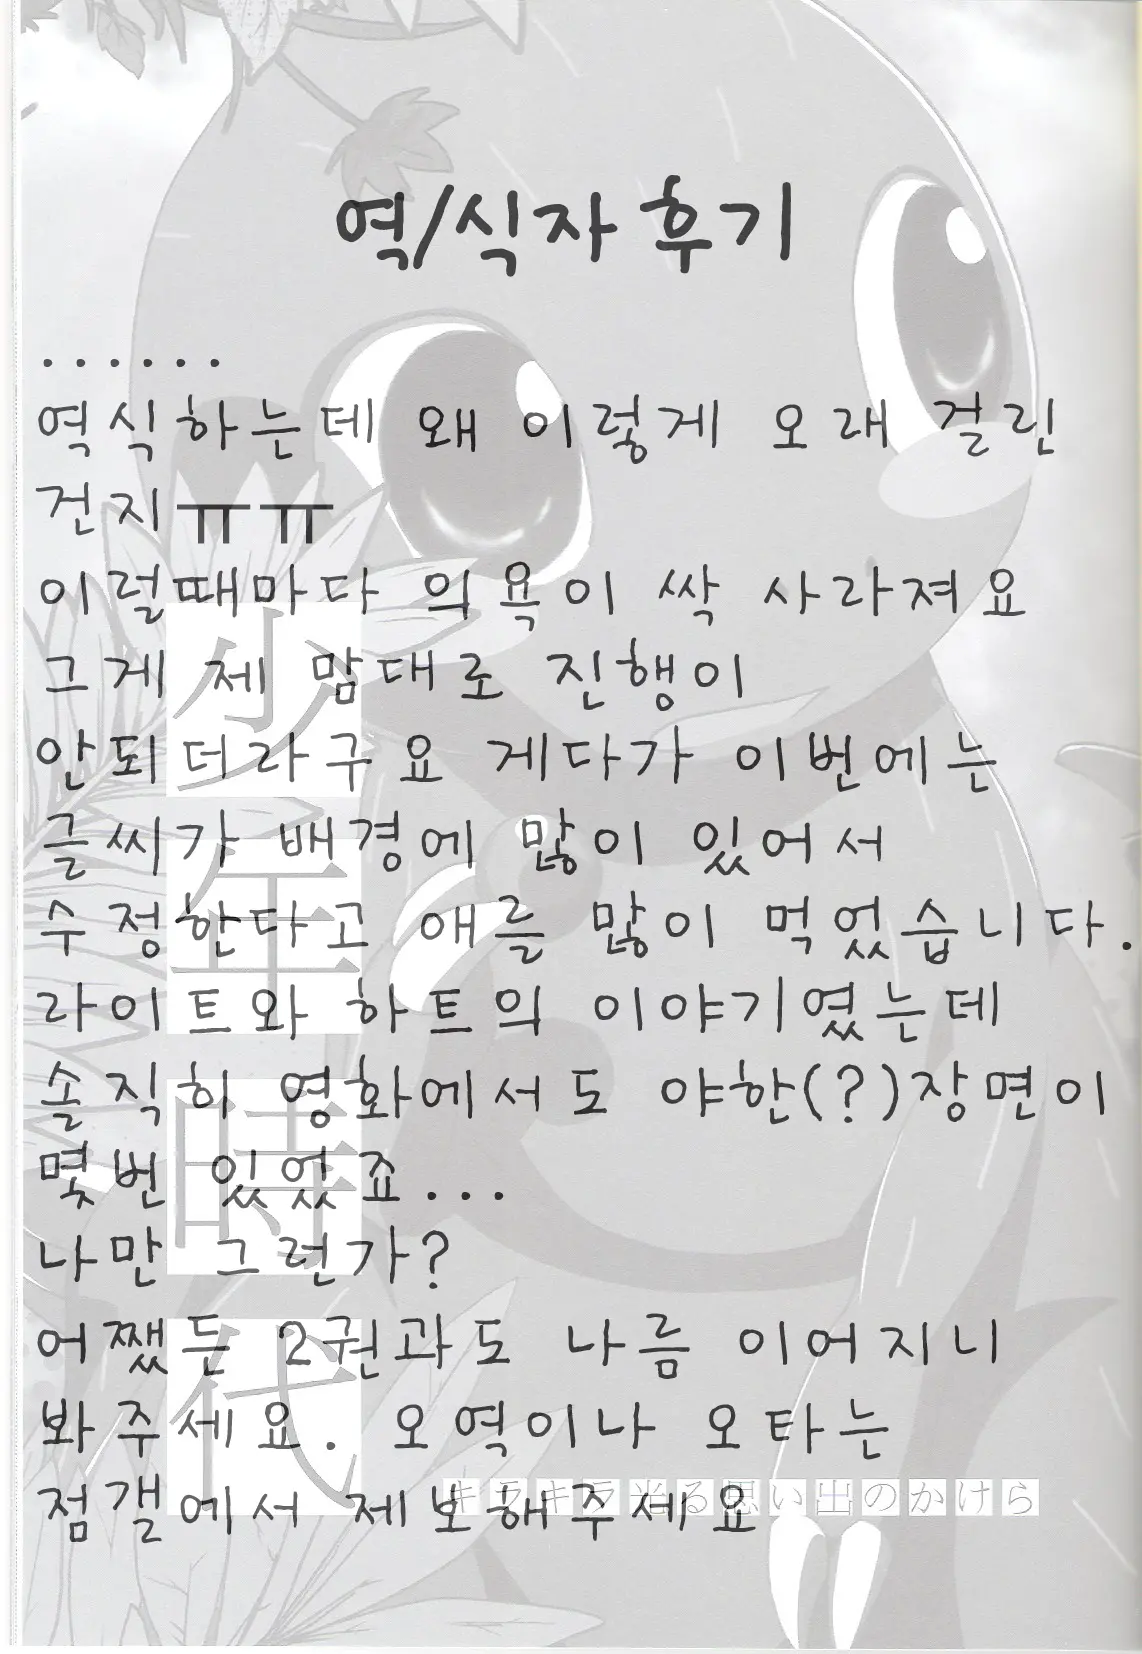 역/식자 후기
......
역식하는데 왜 이렇게 오래 걸린
건지ㅠㅠ
이럴때마다 의욕이 싹 사라져요
그게 제 맘대로 진행이
안되더라구요 게다가 이번에는
글씨가 배경에 많이 있어서
수정한다고 애를 많이 먹었습니다.
라이트와 하트의 이야기였는데
솔직히 영화에서도 야한(?)장면이
몇번 있었죠...
나만 그런가?
어쨌든 2권과도 나름 이어지니
봐주세요. 오역이나 오타는
점갤에서 제보해주세요
少年時代
キラキラ光る思い出のかけら